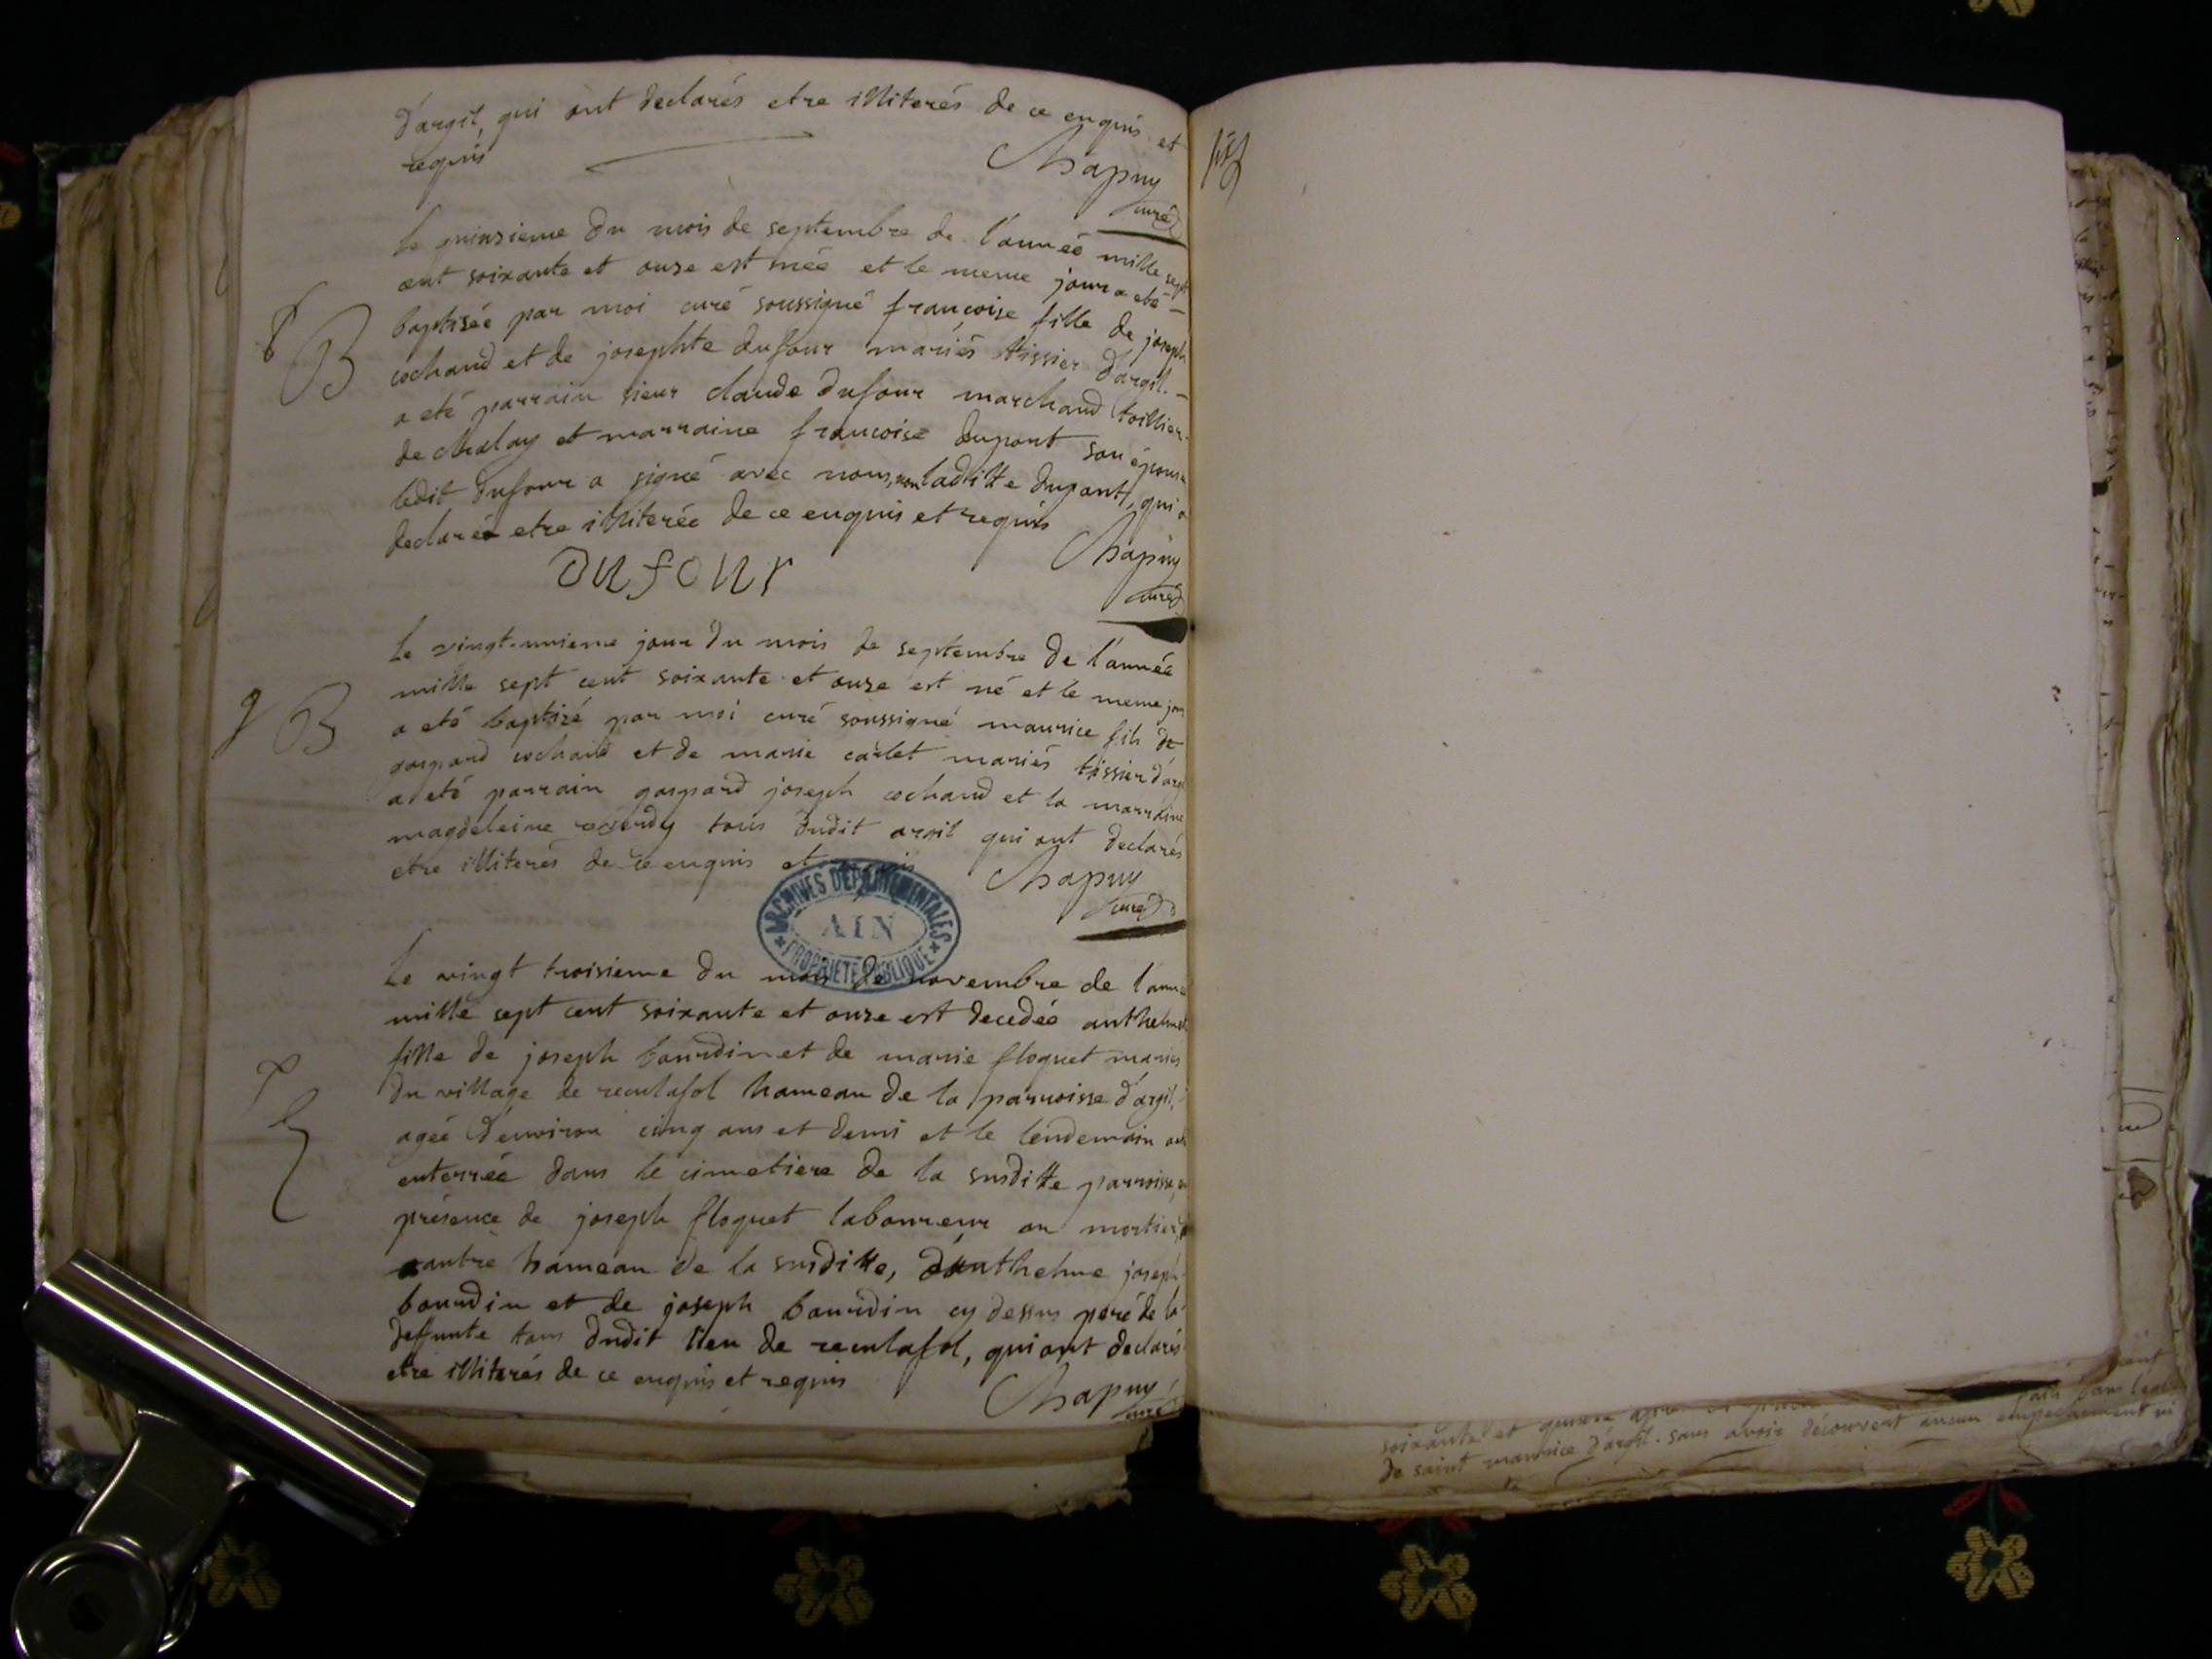 d'argil, qui ont declarés etre illiterés de ce enquis et
requis
Chapuy
curé
Le quinzieme du mois de septembre de l'année mille sept
cent soixante et onze est née et le meme jour a eté
8 B
baptisée par moi curé soussigné francoise fille de joseph
cochand et de josephte dufour mariés tissier d'argil.
a eté parrain sieur claude dufour marchand toillier
de chaley et marraine francoise dupont son épouse
ledit dufour a signé avec nous, non laditte dupont, qui a
declarée etre illiterée de ce enquis et requis
Chapuy
dufour
curé
Le vingt-unieme jour du mois de septembre de l'année
mille sept cent soixante et onze est né et le meme jour
9 B
a eté baptizé par moi curé soussigné maurice fils de
gaspard cochand et de marie carlet mariés tissier d'argil
a eté parrain gaspard joseph cochand et la marraine
magdeleine tous dudit argil qui ont declarés
etre illiterés de ce enquis et requis
Chapuy
curé
ARCHIVES DÉPARTEMENTALES
AIN
PROPRIÉTÉ PUBLIQUE
Le vingt troisieme du mois de novembre de l'année
mille sept cent soixante et onze est decedée anthelmette
fille de joseph bourdin et de marie floquet mariés
du village de reculafol hameau de la parroisse d'argil,
agée d'environ cinq ans et demi et le lendemain a eté
enterrée dans le cimetiere de la susditte parroisse, en
présence de joseph floquet laboureur au mortier,
autre hameau de la susditte, d'anthelme joseph
bourdin et de joseph bourdin cy dessus pere de la
deffunte tous dudit lieu de reculafol, qui ont declarés
etre illiterés de ce enquis et requis
Chapuy
curé
soixante et
de saint maurice d'argil. sans avoir découvert aucun empechement ni